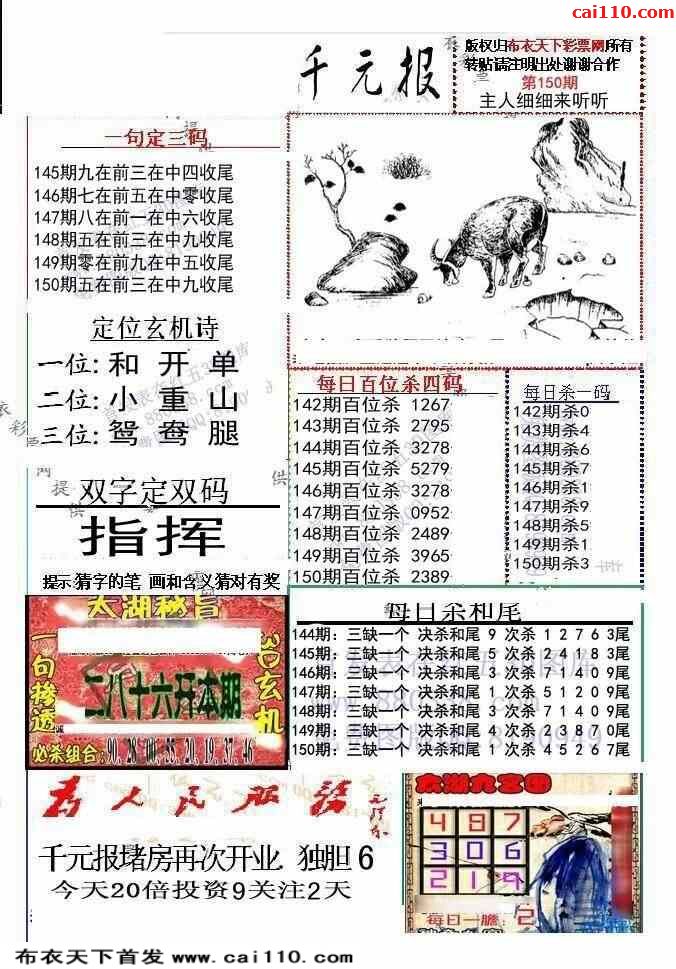 cai110.com
千元报
版权归布衣天下彩票网所有
转贴请注明出处谢谢合作
第150期
主人细细来听听
一句定三码
145期九在前三在中四收尾
146期七在前五在中零收尾
147期八在前一在中六收尾
148期五在前三在中九收尾
149期零在前九在中五收尾
150期五在前三在中九收尾
定位玄机诗
一位: 和 开 单
二位: 小 重 山
三位: 鸳 鸯 腿
双字定双码
指挥
提示:猜字的笔 画和含义猜对有奖
每日百位杀四码
142期百位杀 1267
143期百位杀 2795
144期百位杀 3278
145期百位杀 5279
146期百位杀 3278
147期百位杀 0952
148期百位杀 2489
149期百位杀 3965
150期百位杀 2389
每日杀一码
142期杀0
143期杀4
144期杀6
145期杀7
146期杀1
147期杀9
148期杀5
149期杀1
150期杀3
太湖秘旨
一句掺透
二八十六开本期
玄机
必杀组合: 90. 28. 00. 55. 20. 19. 37. 46
每日杀和尾
144期: 三缺一个 决杀和尾 9 次杀 1 2 7 6 3尾
145期: 三缺一个 决杀和尾 5 次杀 2 4 1 8 3尾
146期: 三缺一个 决杀和尾 6 次杀 7 1 4 0 9尾
147期: 三缺一个 决杀和尾 1 次杀 5 1 2 0 9尾
148期: 三缺一个 决杀和尾 3 次杀 7 1 4 0 9尾
149期: 三缺一个 决杀和尾 4 次杀 2 3 8 7 0尾
150期: 三缺一个 决杀和尾 1 次杀 4 5 2 6 7尾
为人民服务
千元报堵房再次开业 独胆 6
今天20倍投资9关注2天
太湖九宫图
4 8 7
3 0 6
2 1 9
每日一胆: 2
布衣天下首发 www.cai110.com